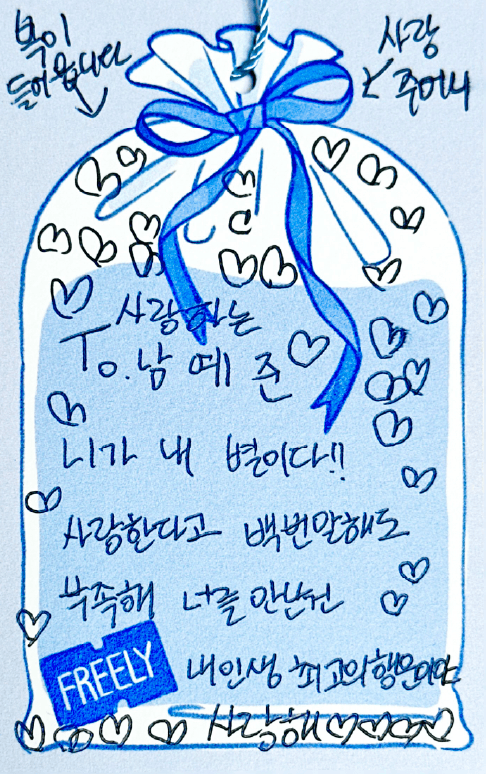 복이
들어옵니다
사랑
주머니
사랑하는
To. 남예준
니가 내 별이다!!
사랑한다고 백번말해도
부족해 너를 만난건
내인생 최고의행운이야
FREELY
사랑해